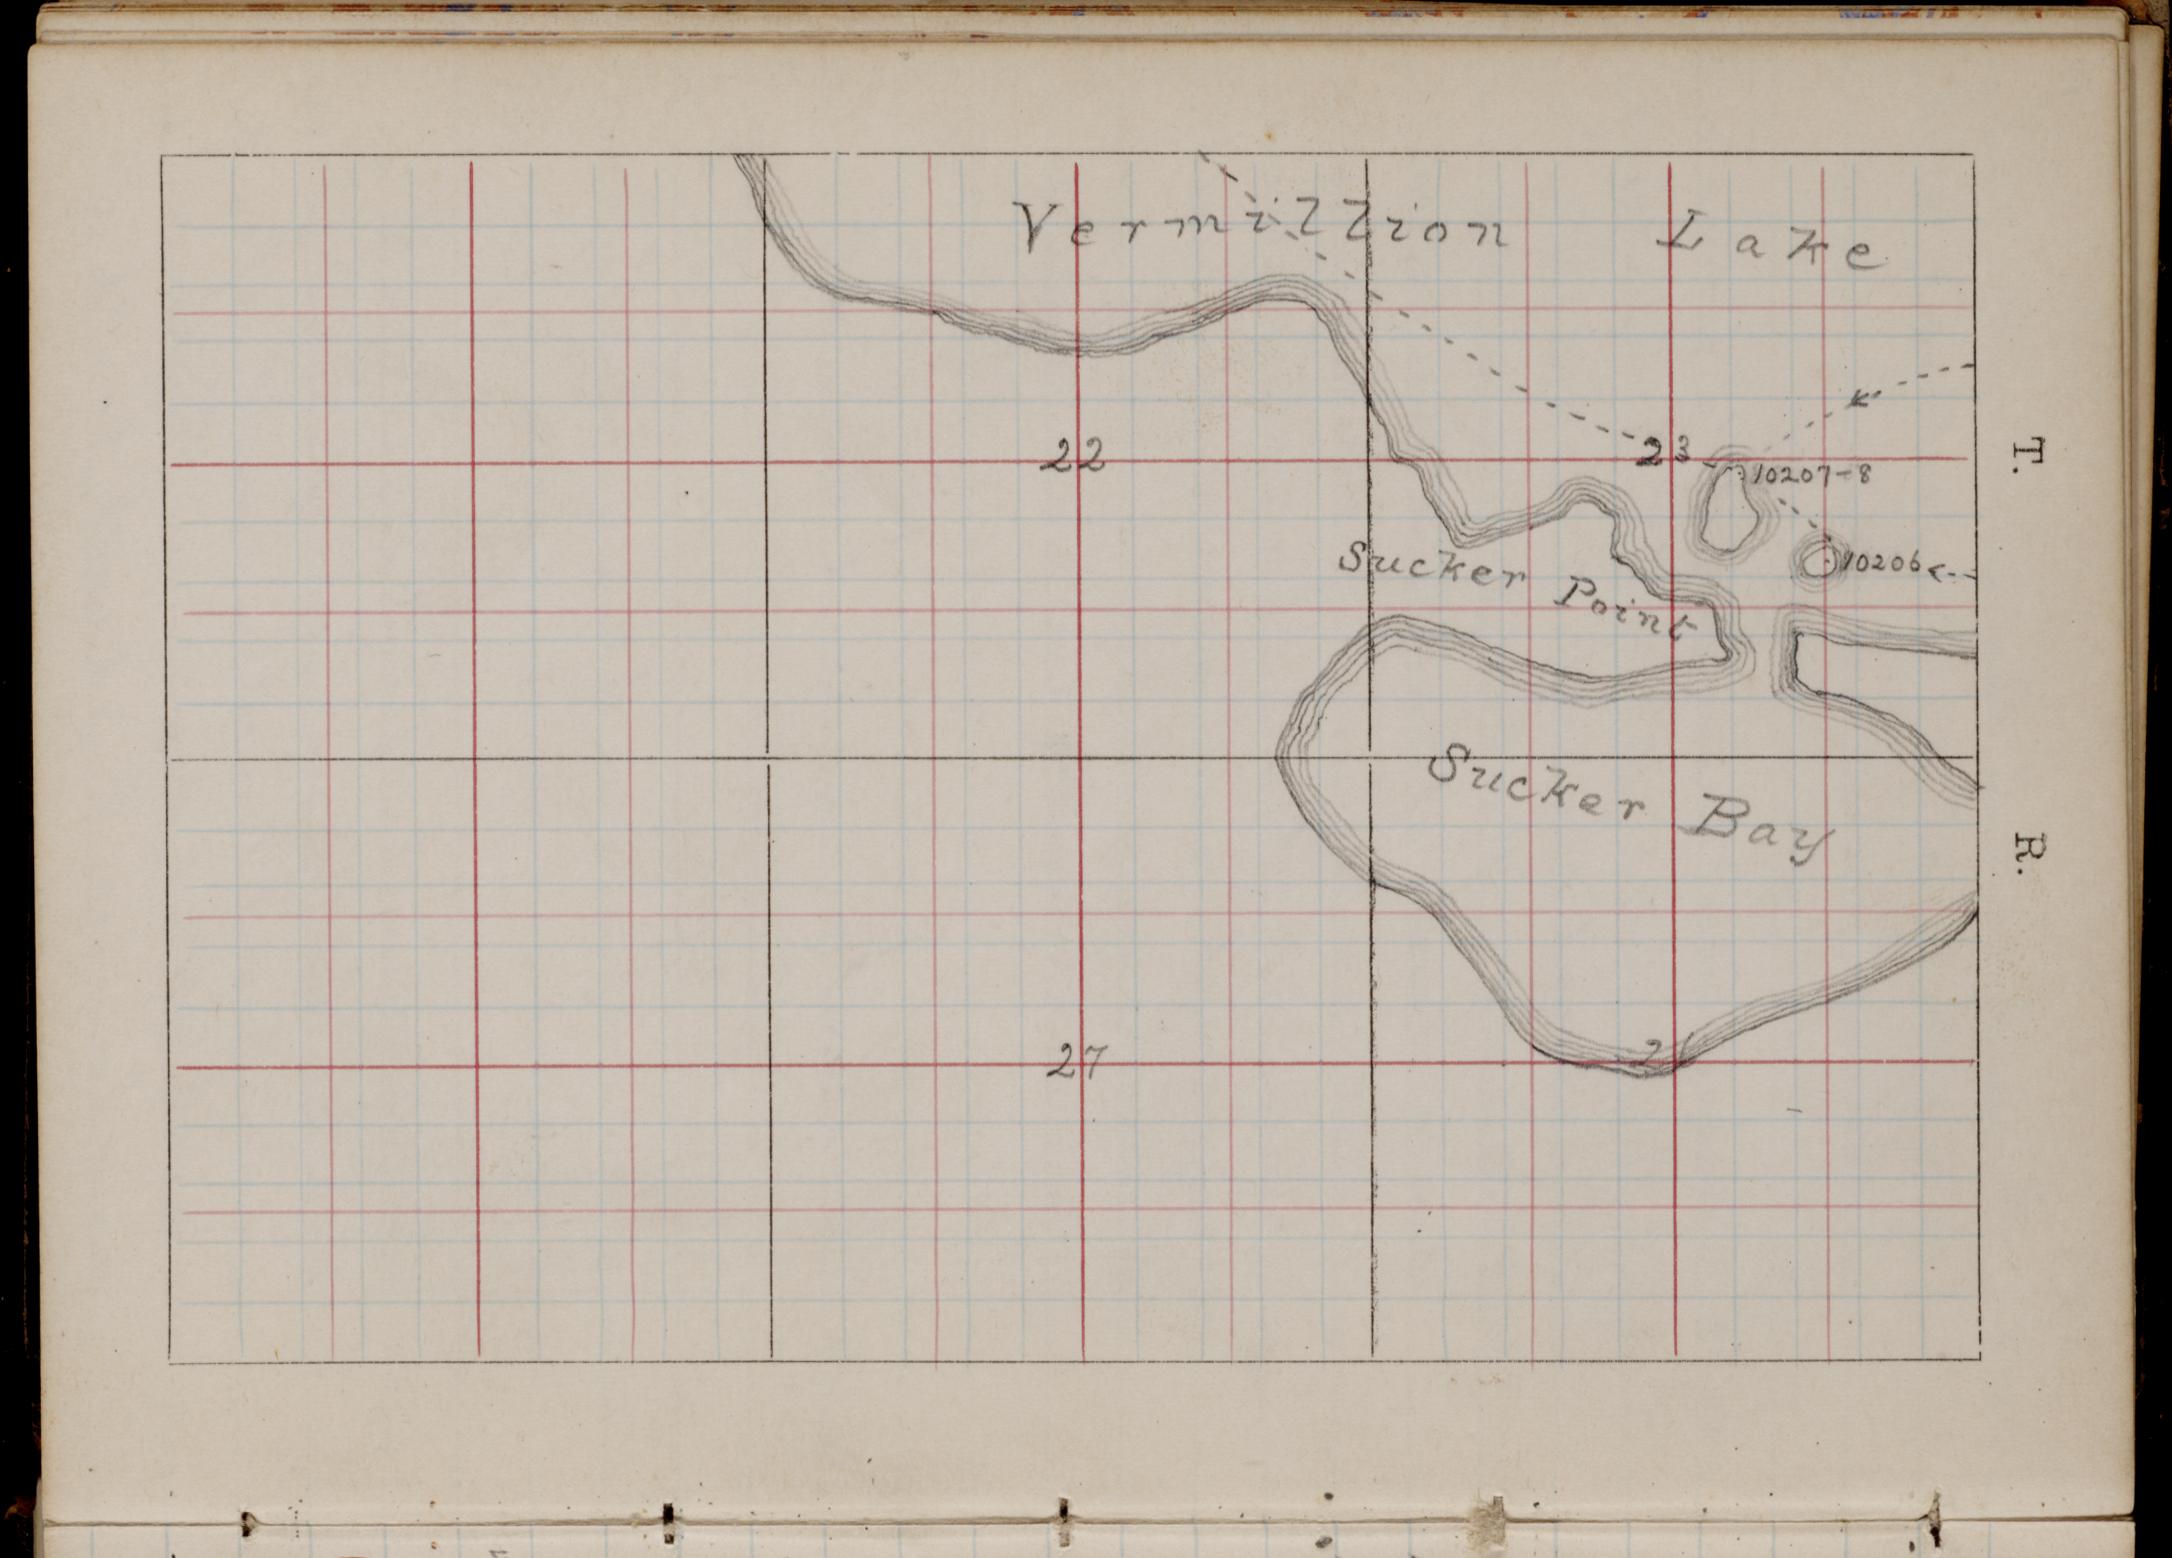 Vermillion Lake
22
23
10207-8
10206
Sucker Point
Sucker Bay
27
2
T.
R.